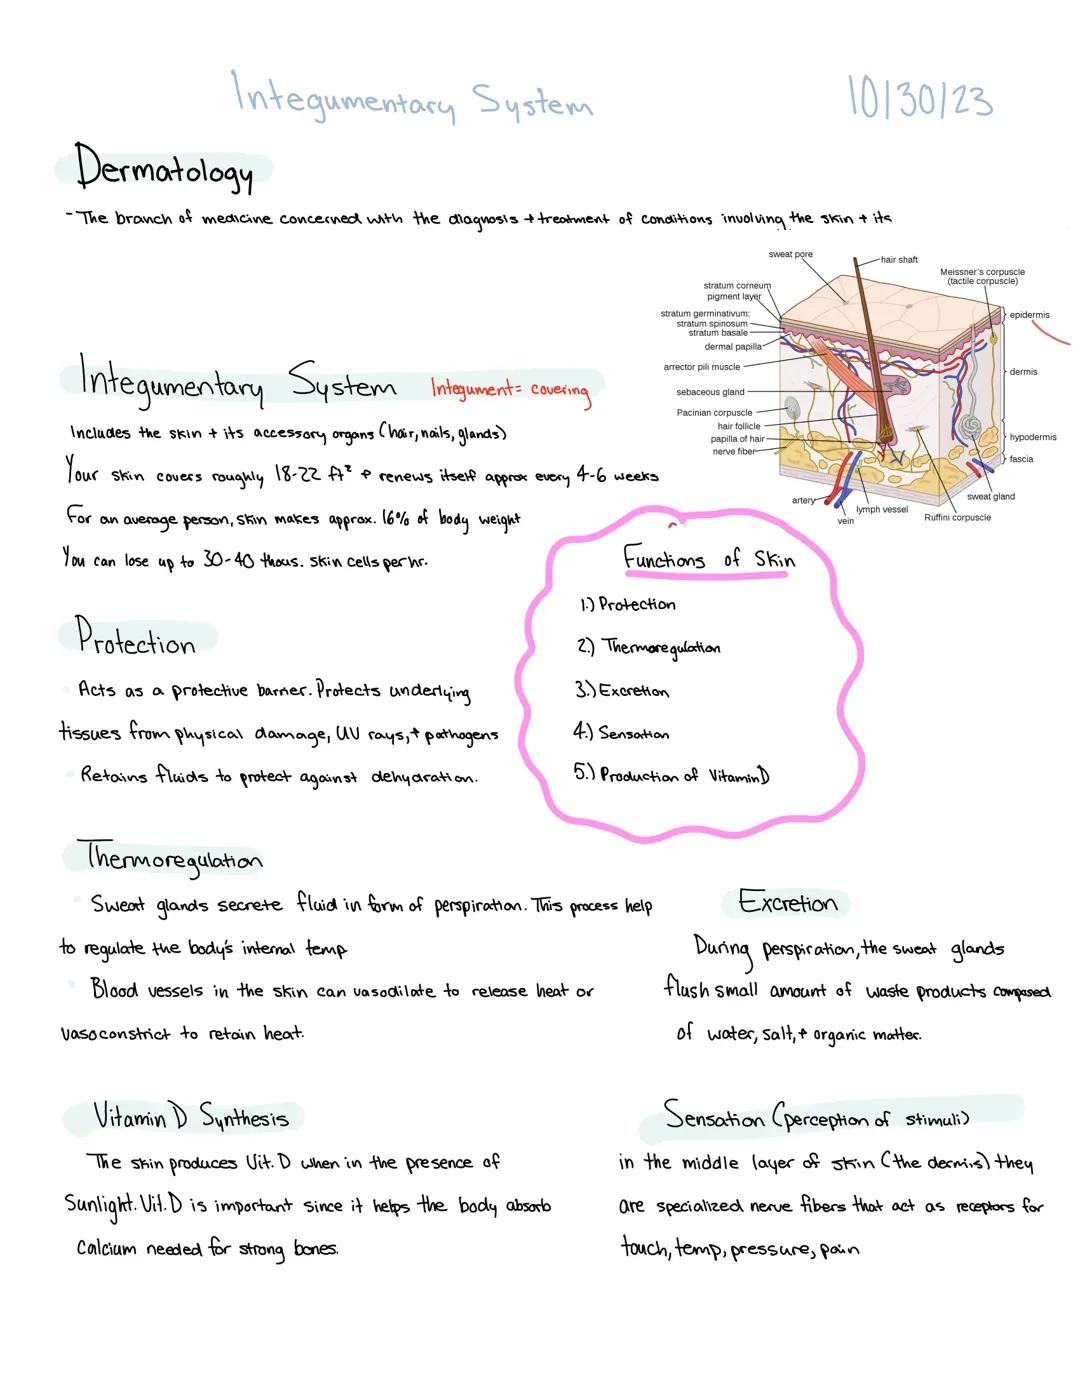 Integumentary System 10/30/23
Dermatology
- The branch of medicine concerned with the diagnosis + treatment of conditions involving the skin + its
sweat pore
hair shaft
Meissner's corpuscle
(tactile corpuscle)
stratum corneum
pigment layer
stratum germinativum:
stratum spinosum
stratum basale
dermal papilla
arrector pili muscle
sebaceous gland
Pacinian corpuscle
hair follicle
papilla of hair
nerve fiber
epidermis
dermis
hypodermis
fascia
artery
vein
lymph vessel
Ruffini corpuscle
sweat gland
Integumentary System Integument= covering
Includes the skin + its accessory organs (hair, nails, glands)
Your skin covers roughly 18-22 ft² + renews itself approx every 4-6 weeks
For an average person, skin makes approx. 16% of body weight
You can lose up to 30-40 thous. skin cells per hr.
Functions of Skin
1.) Protection
2.) Thermoregulation
3.) Excretion
4.) Sensation
5.) Production of Vitamin D
Protection
Acts as a protective barrier. Protects underlying
tissues from physical damage, UV rays, + pathogens
Retains fluids to protect against dehydration.
Thermoregulation
Sweat glands secrete fluid in form of perspiration. This process help
to regulate the body's internal temp
Blood vessels in the skin can vasodilate to release heat or
vasoconstrict to retain heat.
Excretion
During perspiration, the sweat glands
flush small amount of waste products composed
of water, salt, + organic matter.
Vitamin D Synthesis
The skin produces Vit. D when in the presence of
Sunlight. Vit. D is important since it helps the body absorb
Calcium needed for strong bones.
Sensation (perception of stimuli)
in the middle layer of skin (the dermis) they
are specialized nerve fibers that act as receptors for
touch, temp, pressure, pain